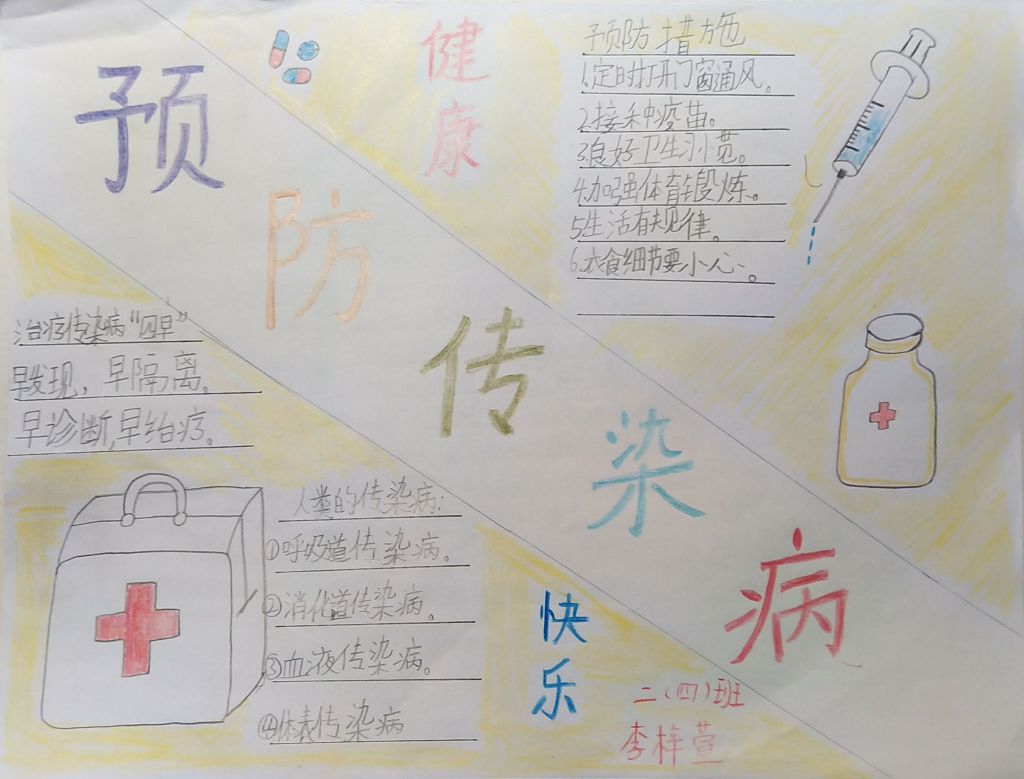 预防传染病
健康
预防措施
1.定时打开门窗通风。
2.接种疫苗。
3.良好卫生习惯。
4.加强体育锻炼。
5生活有规律。
6.衣食细节要小心。
治疗传染病“四早”
早发现，早隔离。
早诊断,早治疗。
人类的传染病:
①呼吸道传染病。
②消化道传染病。
③血液传染病。
④体表传染病
快乐
二(四)班
李梓萱